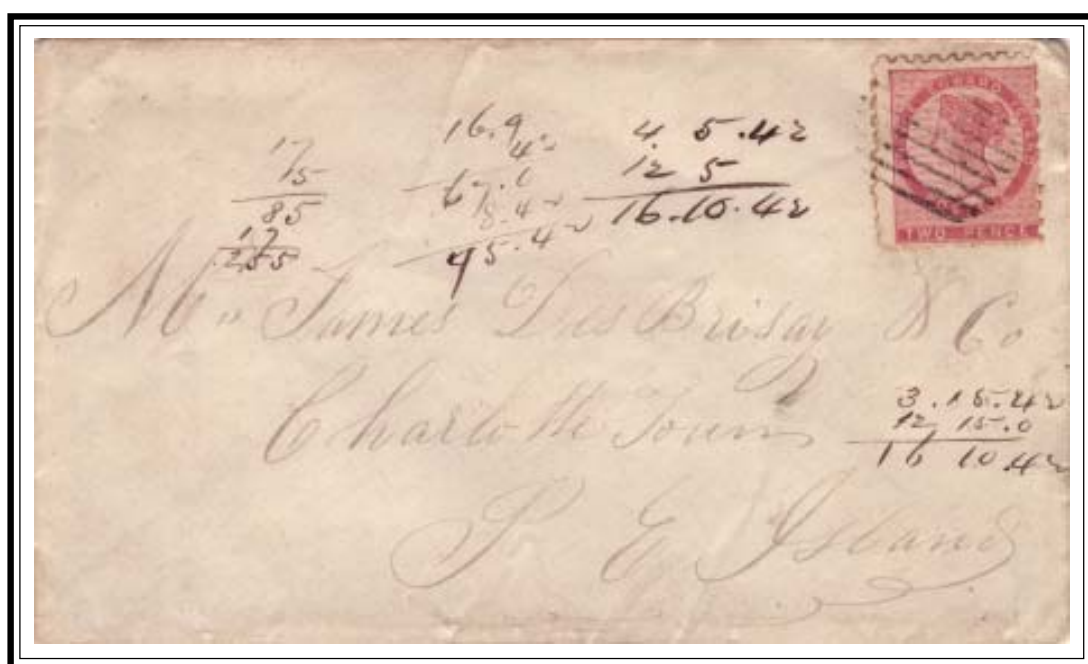 17
15
85
17
255
16.9
4½
67.6
8.4½
75.4½
4. 5.4½
12 5
16.10.4½
TWO PENCE
Mr James DesBrisay & Co
Charlotte Town
P. E. Island
3.15.4½
12 15.0
16 10.4½